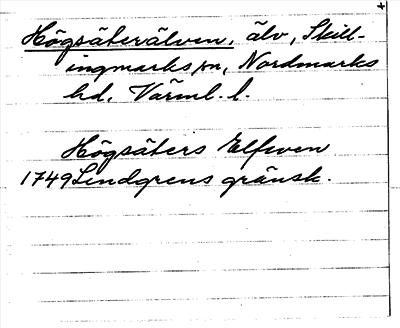 Högsäterälven, älv, Skill-
ingmarks sn, Nordmarks
hd, Värml. l.
Högsäters Elfwen
1749 Lindgrens gränsk.